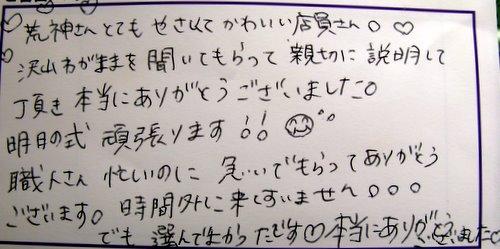 荒神さんとても やさしくて かわいい店員さん。♡
沢山わがままを聞いてもらって 親切に 説明して
丁頁き 本当にありがとうございました。
明日の式 頑張ります!!
職人さん 忙しいのに 急いでもらって ありがとう
ございます。時間外に来てすいません。。。
でも 選んでよかったです♡ 本当にありがとうございました。